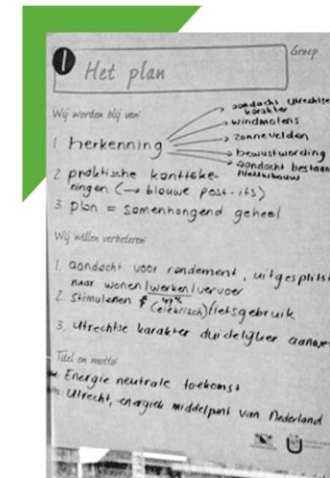 1 Het plan
Groep
Wij worden blij van:
aandacht Utrechtse
karakter
windmolens
1 herkenning
zonnevelden
bewustwording
aandacht bestaan
nieuwbouw
2 praktische kantteke-
ningen (→ blauwe post-its)
3 plan = samenhangend geheel
Wij willen verbeteren:
1. aandacht voor rendement, uitgesplitst
naar wonen/werken/vervoer
47%
2. stimuleren (elektrisch) fietsgebruik
3. Utrechtse karakter duidelijker aanwe
Titel en motto:
Energie neutrale toekomst
Utrecht, energiek middelpunt van Nederland